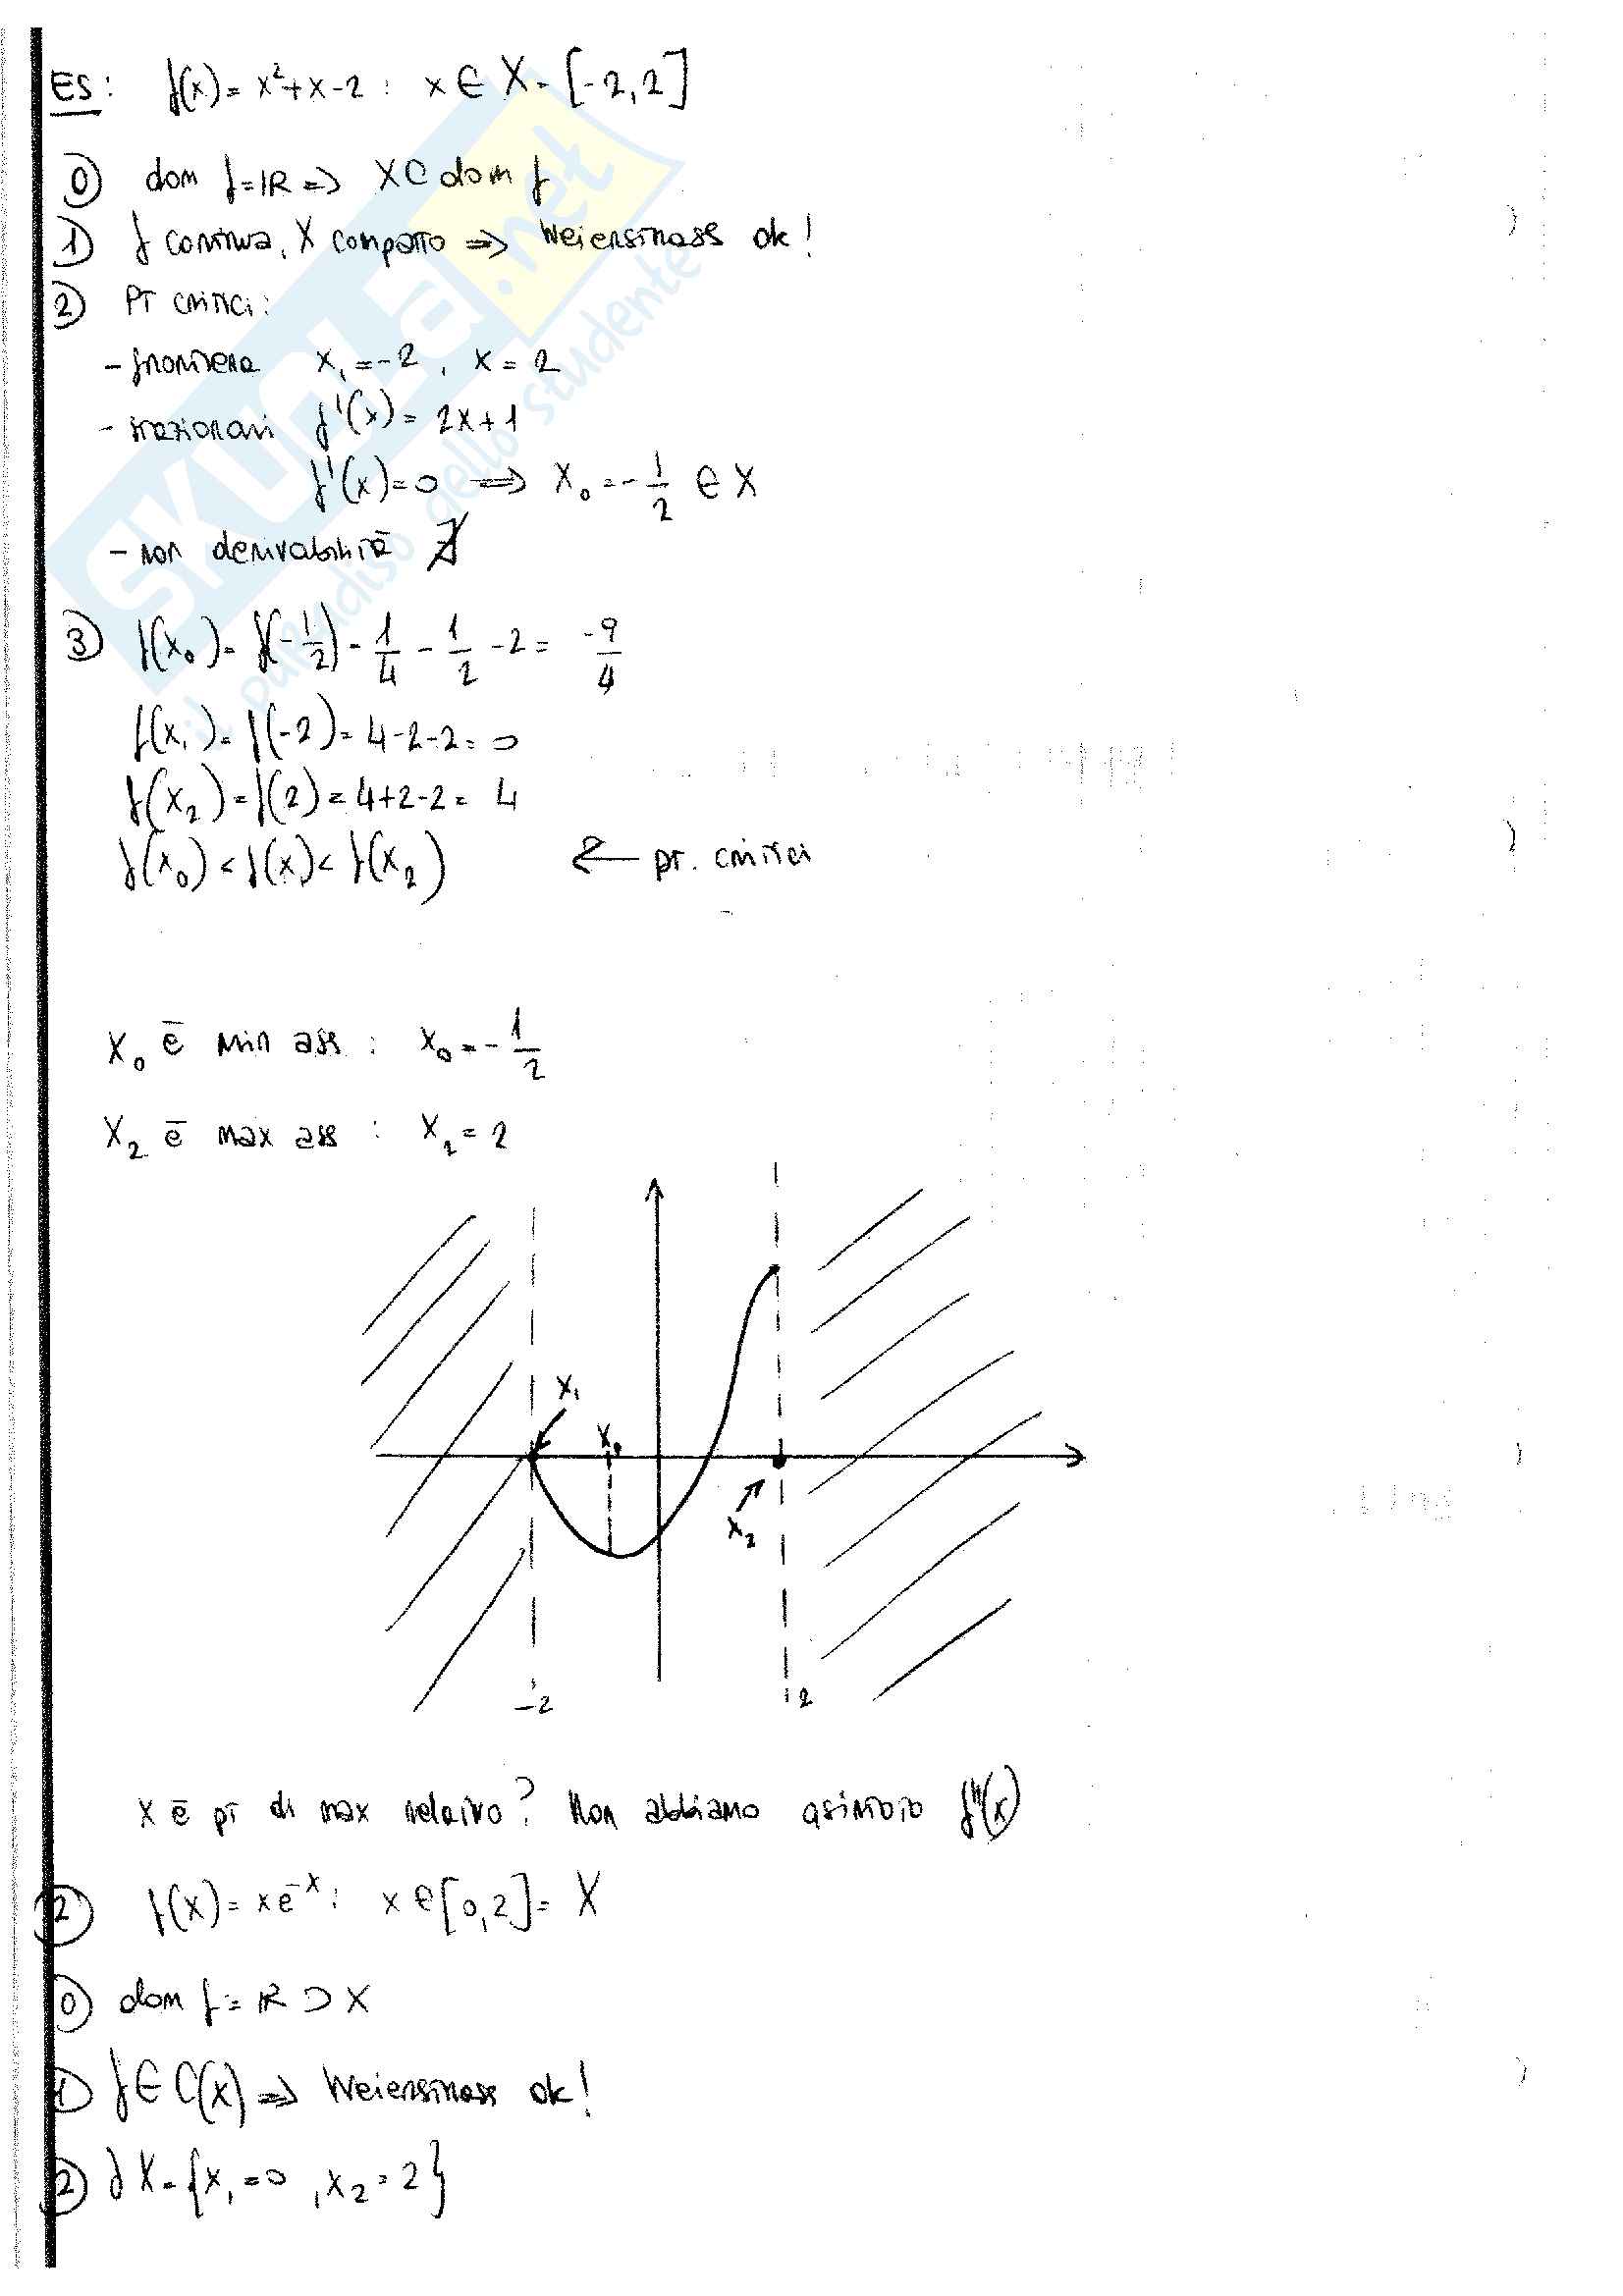 ES: f(x)= x²+x-2 : x ∈ X= [-2,2]
0) dom f=ℝ ⇒ X⊂dom f
1) f continua, X compatto ⇒ Weierstrass ok!
2) PT critici:
- frontiera x₁=-2, x=2
- stazionari f'(x)= 2x+1
f'(x)=0 ⇒ x₀=-1/2 ∈ X
- non derivabilità ∄
3) f(x₀)= f(-1/2)= 1/4 - 1/2 -2= -9/4
f(x₁)= f(-2)= 4-2-2= 0
f(x₂)=f(2)=4+2-2= 4
f(x₀)<f(x)<f(x₂) ← pt. critici
x₀ è min ass : x₀=-1/2
x₂ è max ass : x₂=2
x₁
x₀
x₂
-2
2
x è pt di max relativo? Non abbiamo asintoto f''(x)
2) f(x)= xe⁻ˣ : x∈[0,2]= X
0) dom f=ℝ⊃X
1) f∈C(X)⇒ Weierstrass ok!
2) ∂X={x₁=0, x₂=2}
SKUOLa.net
il paradiso dello studente